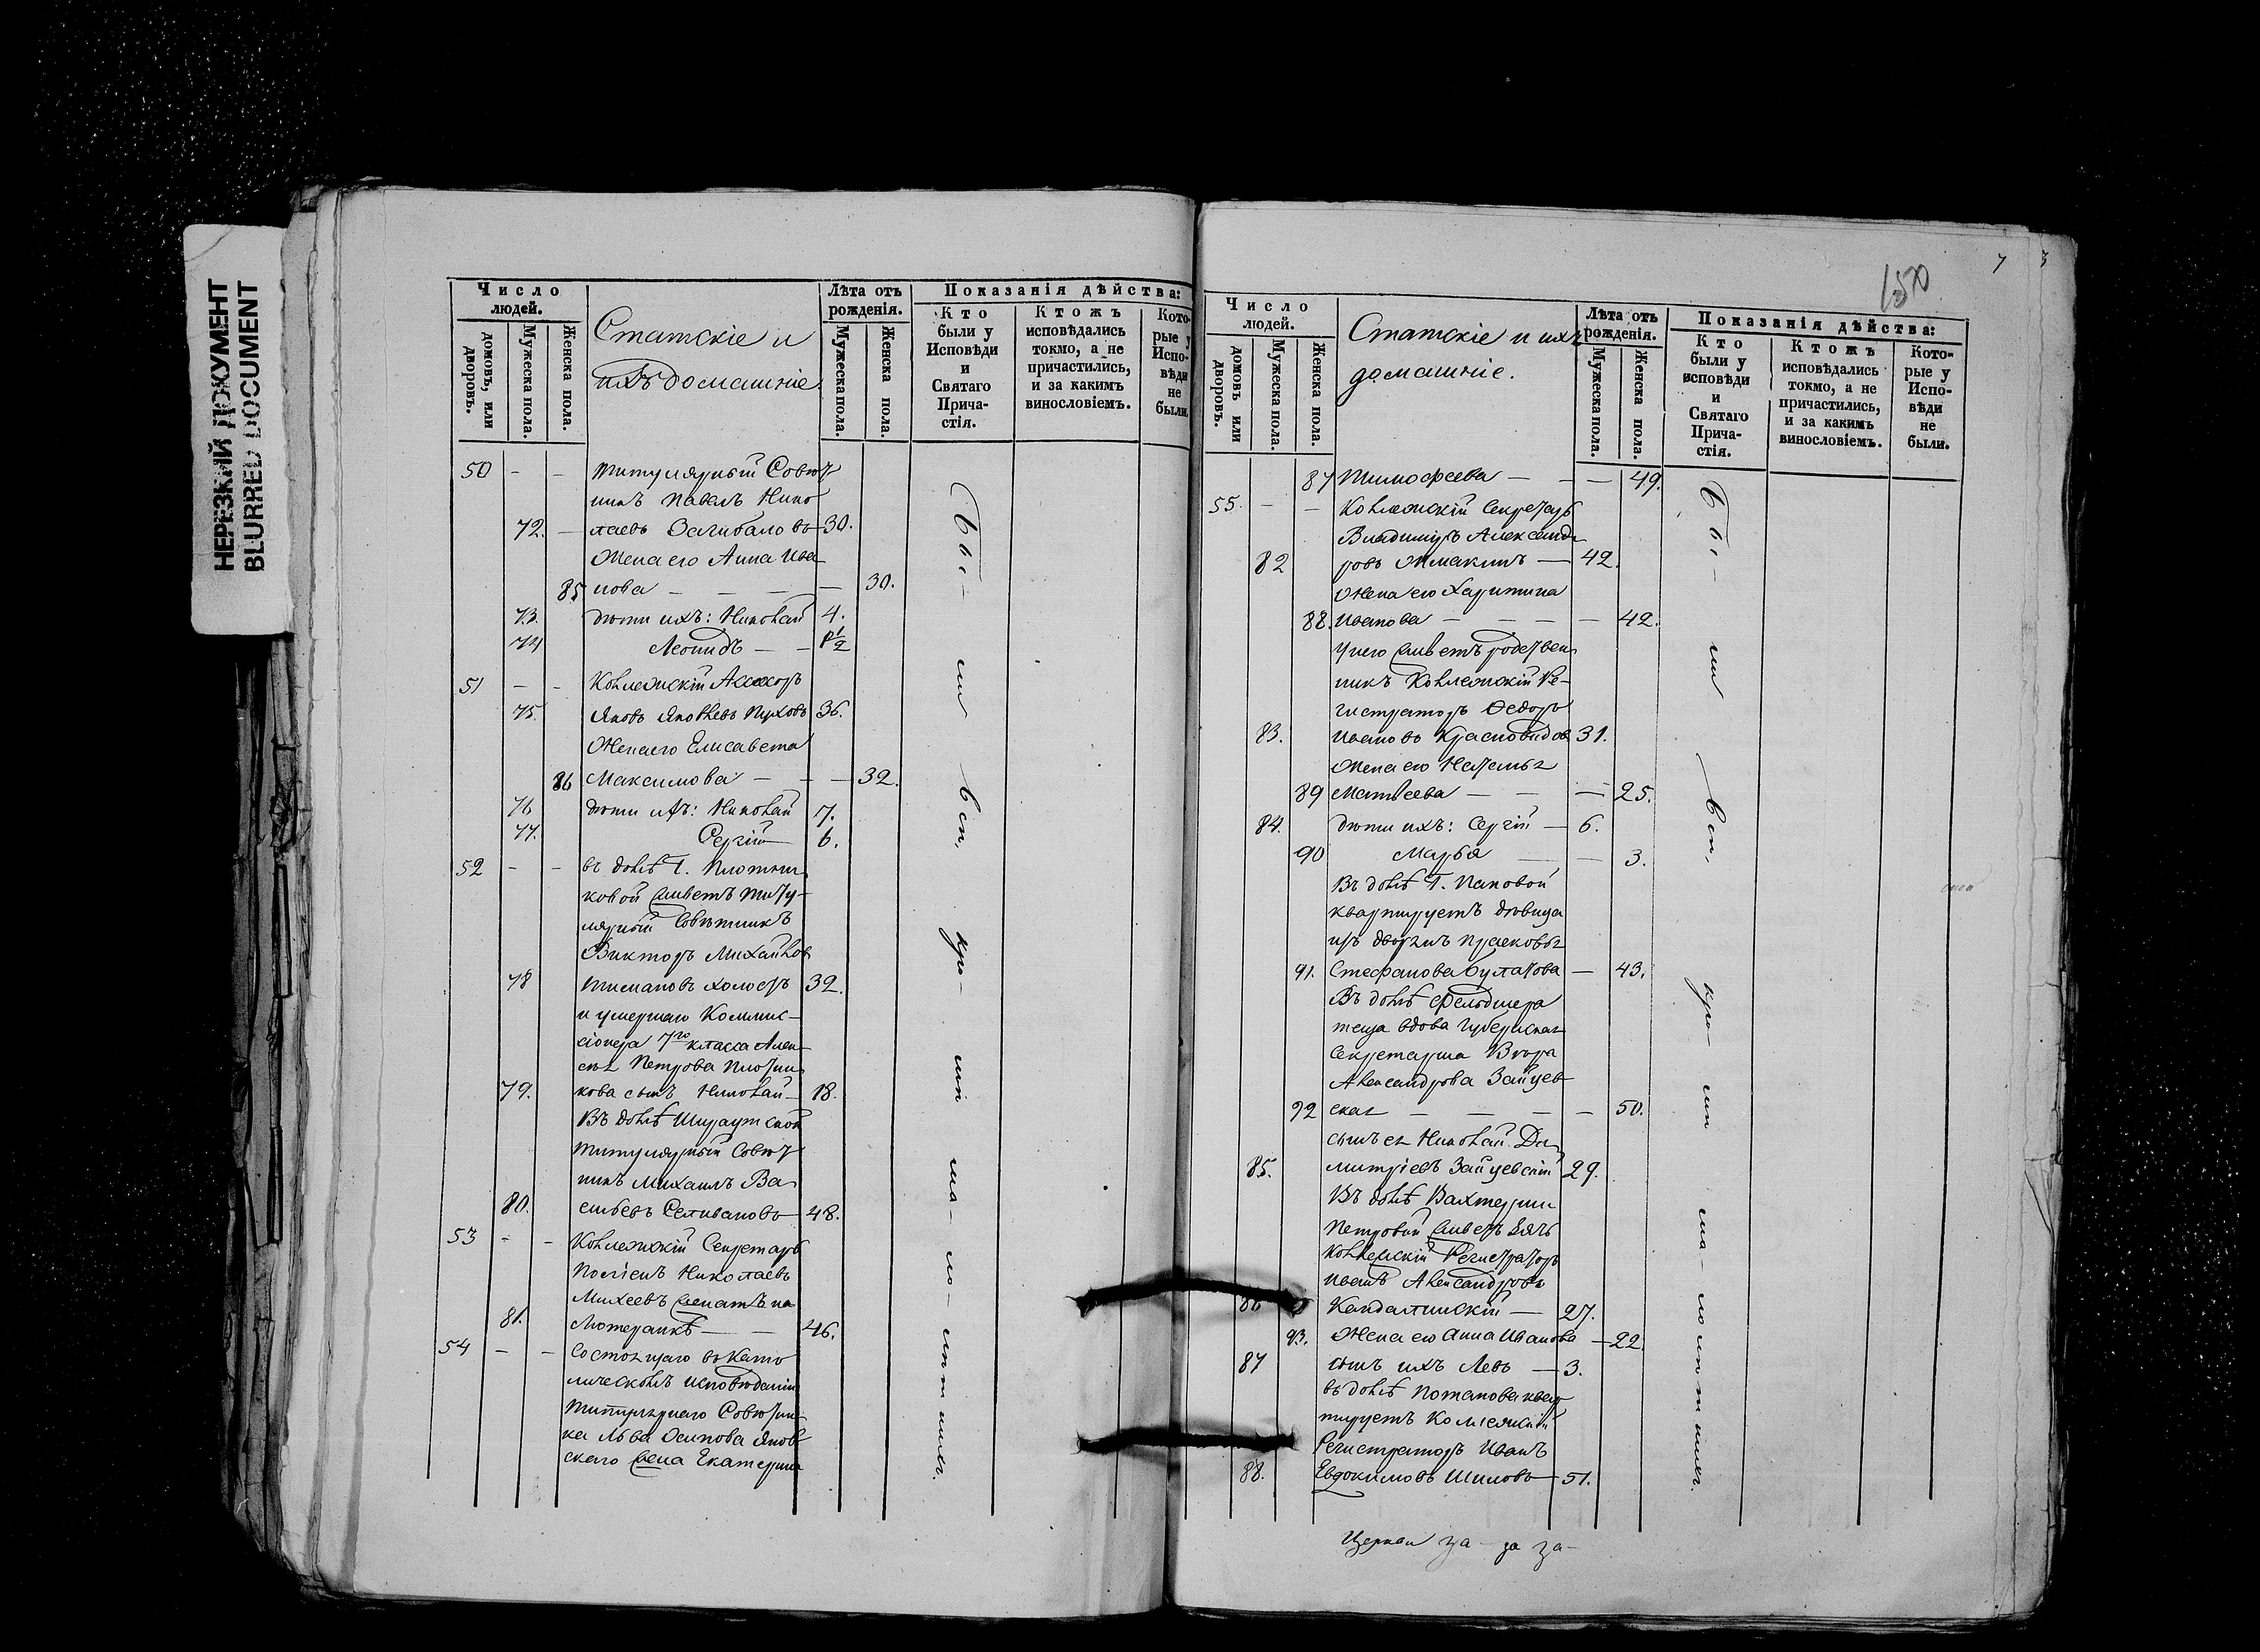 НЕРЕЗКИЙ ДОКУМЕНТ
BLURRED DOCUMENT
Число людей.
домовъ, или дворовъ.
Мужеска пола.
Женска пола.
Статскіе и
ихъ домашніе
Лѣта отъ рожденія.
Мужеска пола.
Женска пола.
Показанія дѣйства:
Кто были у Исповѣди и Святаго Прича-стія.
Ктожъ исповѣдались токмо, а не причастились, и за какимъ винословіемъ.
Кото-рые у Испо-вѣди не были.
50 - - Титулярный Совѣт
никъ Павелъ Нико
72. - лаевъ Загибаловъ 30.
Жена его Анна Ива
85 нова — — — — 30.
73. дѣти ихъ: Николай 4.
74 Леонидъ — — 1/2
51 - - Коллежскій Асессоръ
75. Яковъ Яковлевъ Пуховъ 36.
Жена его Елисавета
86 Максимова — — — 32.
76 дѣти ихъ: Николай 7.
77. Сергій 6.
52 - - въ домѣ Г. Плотни
ковой живетъ Титу-
лярный Совѣтникъ
Викторъ Михайлов
78 Тимановъ холостъ 32.
и умершаго Коммис-
сіонера 7го класса Алек
сѣя Петрова Плотни
79. кова сынъ Николай — 18.
Въ домѣ
Титулярный Совѣт
никъ Михаилъ Ва
80. сильевъ Селивановъ — 48.
53 - - Коллежскій Секретарь
Николаевъ
Михеевъ женатъ на
81. Лютеранкѣ — — 46.
54 - - Состоящаго въ Като
лическомъ исповѣданіи
Титулярнаго Совѣтни
ка Льва Осипова Яков
скаго жена Екатерина
Бы-
ли
всп,
кро-
мѣ
ма-
ло-
лѣтнихъ.
1570
7 3
Число людей.
домовъ или дворовъ.
Мужеска пола.
Женска пола.
Статскіе и ихъ
домашніе.
Лѣта отъ рожденія.
Мужеска пола.
Женска пола.
Показанія дѣйства:
Кто были у исповѣди и Святаго Прича-стія.
Ктожъ исповѣдались токмо, а не причастились, и за какимъ винословіемъ.
Кото-рые у Испо-вѣди не были.
87 Тимофеева — — — 49.
55. - - Коллежскій Секретарь
Владимиръ Александ
82 ровъ Жмакинъ — 42.
Жена его Харитина
88. Иванова — — — — 42.
У него живетъ родствен
никъ Коллежскій Ре-
гистраторъ Ѳедоръ
83. Ивановъ Красновидов 31.
Жена его Наталья
89 Матвеева — — — 25.
84. дѣти ихъ: Сергій — 6.
90 Марья — — 3.
Въ домѣ Г. Пановой
квартируетъ дѣвица
изъ дворянъ Прасковья
91. Стефанова Булатова — 43.
Въ домѣ фельдшера
теща вдова Губернская
Секретарша Вѣра
Александрова Зайцев
92 ская — — — — 50.
сынъ ея Николай Ди
85. митріевъ Зайцевскій 29.
Въ домѣ Вахтерши
Петровой живетъ зять
Коллежскій Регистраторъ
Иванъ Александровъ
86 Кандалинскій — 27.
93. Жена его Анна Иванова — 22.
87 сынъ ихъ Левъ — 3.
въ домѣ Потапова квар
тируетъ Коллежскій
Регистраторъ Иванъ
88. Евдокимовъ Шиловъ — 51.
Бы-
ли
всп,
кро-
мѣ
ма-
лолѣтнихъ.
Церкви за - за за-